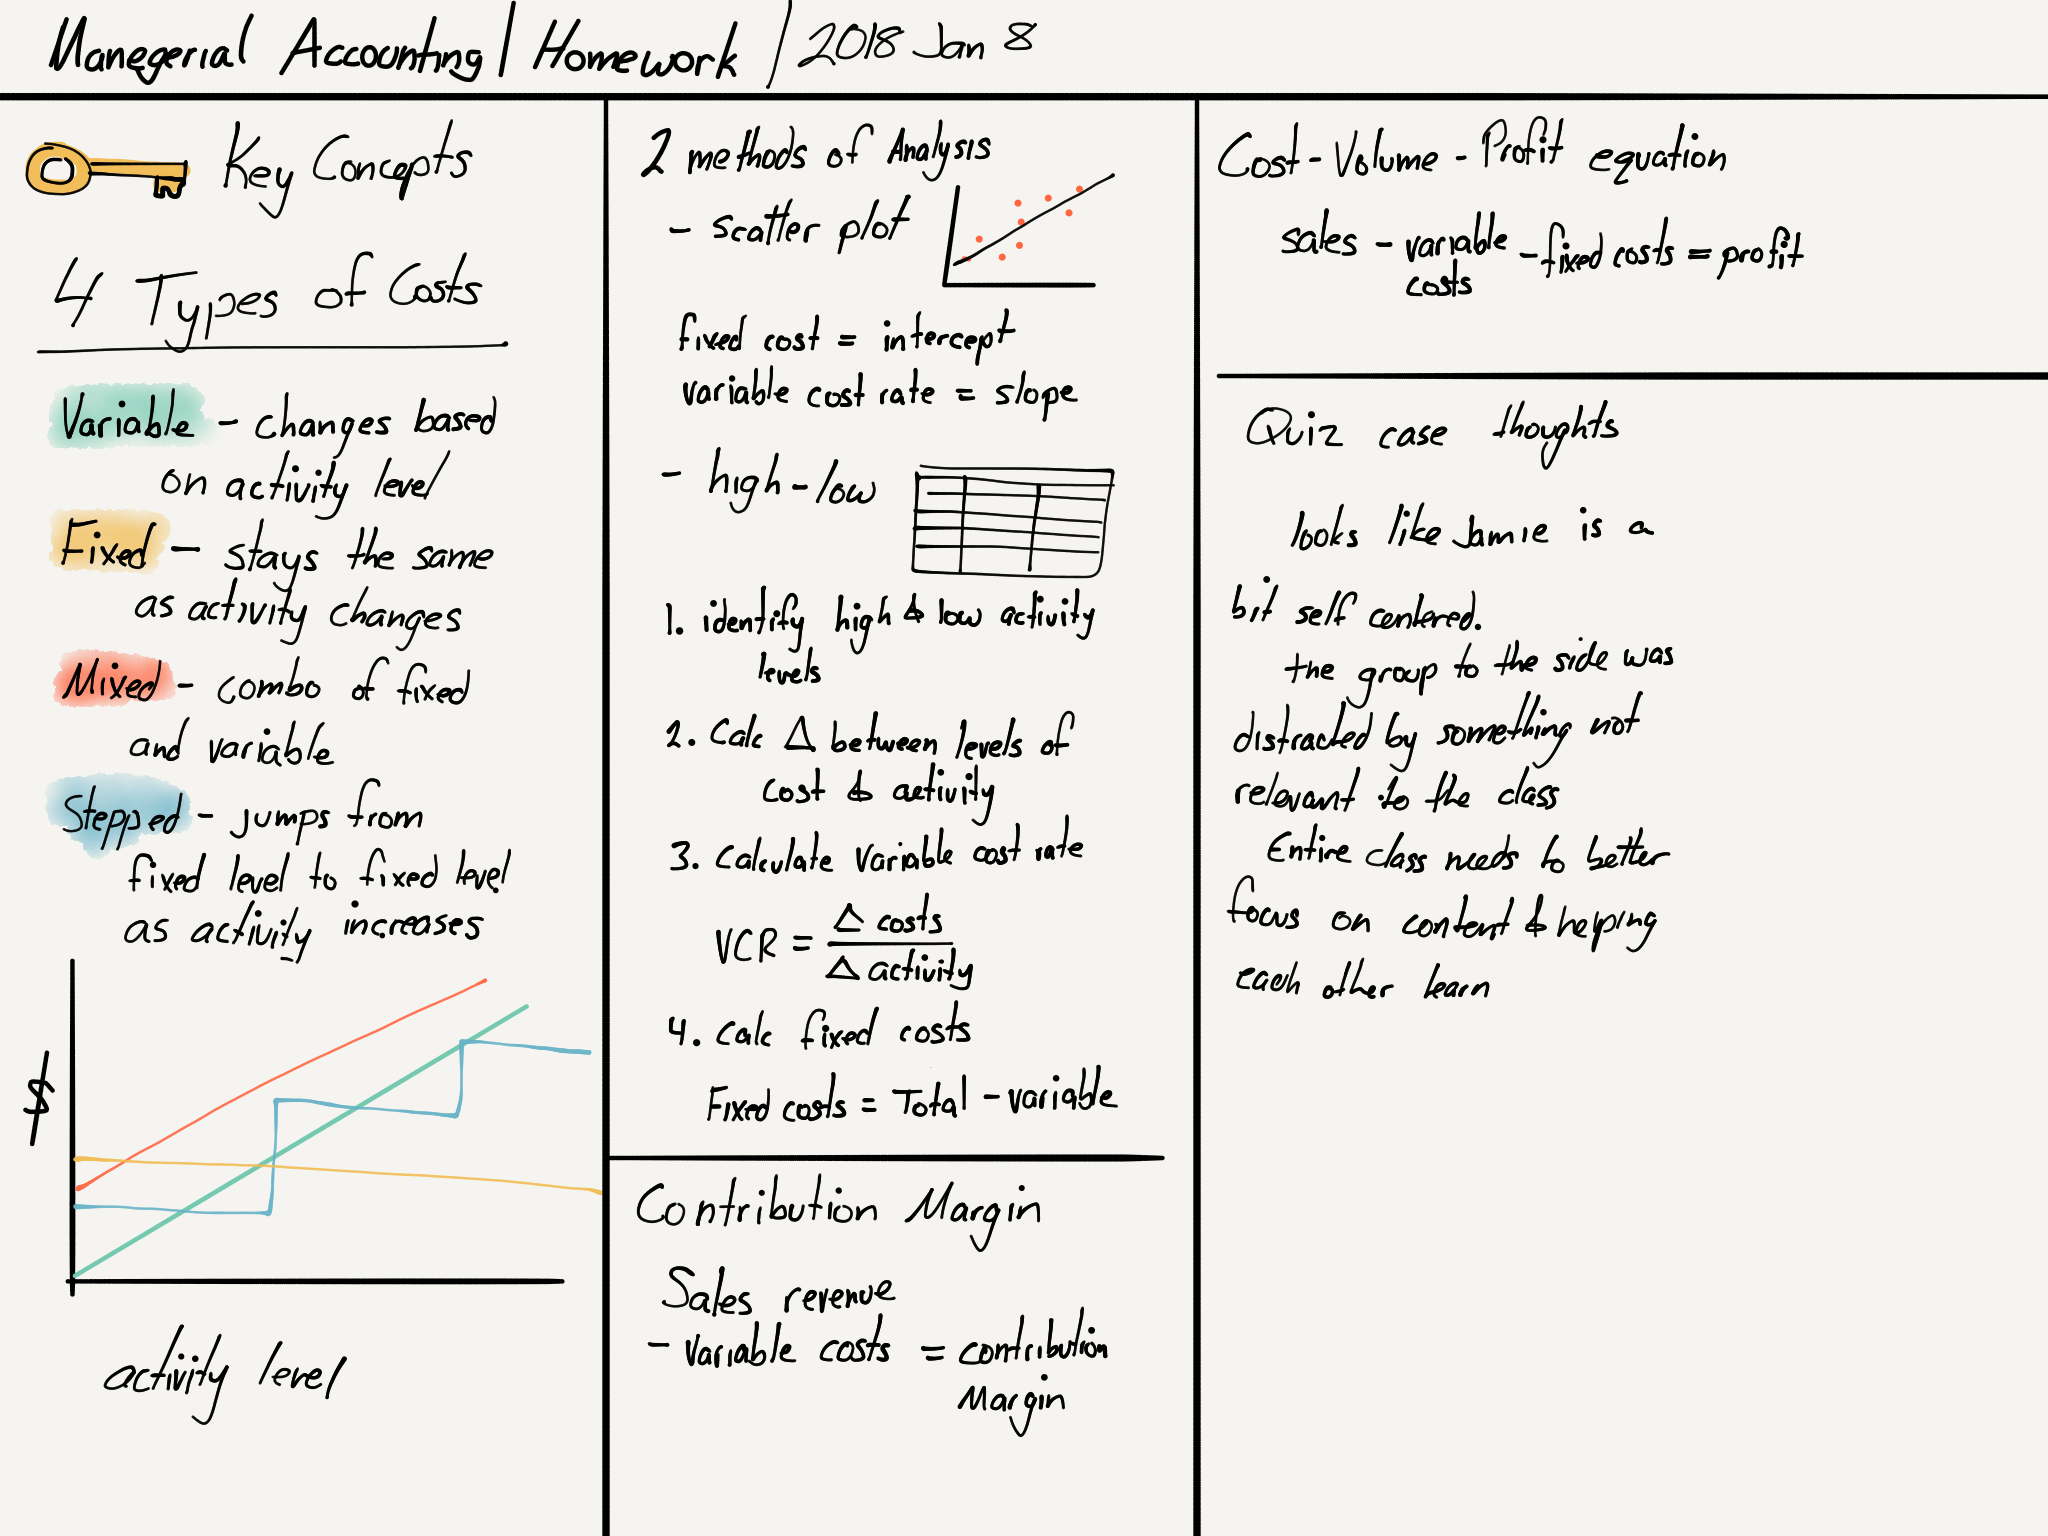 Manegerial Accounting | Homework | 2018 Jan 8
Key Concepts
4 Types of Costs
Variable - changes based
on activity level
Fixed - stays the same
as activity changes
Mixed - combo of fixed
and variable
Stepped - jumps from
fixed level to fixed level
as activity increases
$
activity level
2 methods of Analysis
- scatter plot
fixed cost = intercept
variable cost rate = slope
- high-low
1. identify high & low activity
levels
2. Calc Δ between levels of
cost & activity
3. Calculate variable cost rate
VCR = Δ costs
Δ activity
4. Calc fixed costs
Fixed costs = Total - variable
Contribution Margin
Sales revenue
- variable costs = contribution
Margin
Cost - Volume - Profit equation
sales - variable - fixed costs = profit
costs
Quiz case thoughts
looks like Jamie is a
bit self centered.
the group to the side was
distracted by something not
relevant to the class
Entire class needs to better
focus on content & helping
each other learn